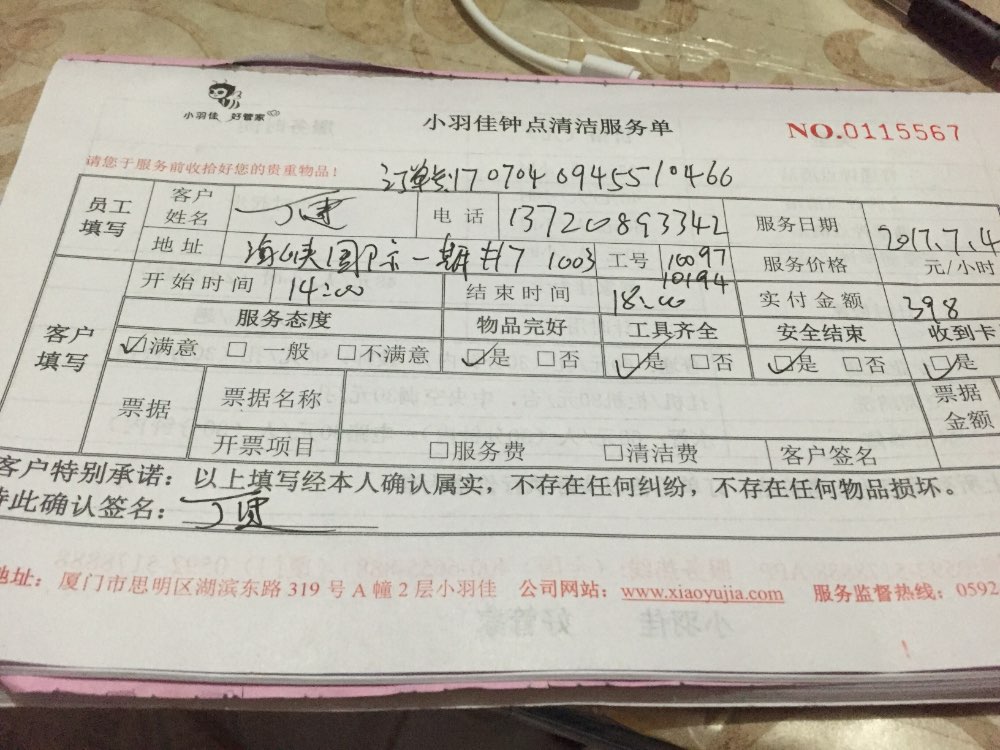 小羽佳 好管家
小羽佳钟点清洁服务单
NO.0115567
请您于服务前收拾好您的贵重物品!
订单号1707040945510466
员工填写 客户姓名 丁建 电话 13720893342 服务日期 2017.7.4
地址 海峡国际一期#7 1003 工号 10097 10194 服务价格 元/小时
客户填写 开始时间 14:00 结束时间 18:00 实付金额 398
服务态度 物品完好 工具齐全 安全结束 收到卡
☑满意 □一般 □不满意 ☑是 □否 ☑是 □否 ☑是 □否 ☑是
票据 票据名称 票据金额
开票项目 □服务费 □清洁费 客户签名
客户特别承诺:以上填写经本人确认属实,不存在任何纠纷,不存在任何物品损坏。
特此确认签名:丁建
地址:厦门市思明区湖滨东路 319 号 A 幢 2 层小羽佳 公司网站:www.xiaoyujia.com 服务监督热线:0592